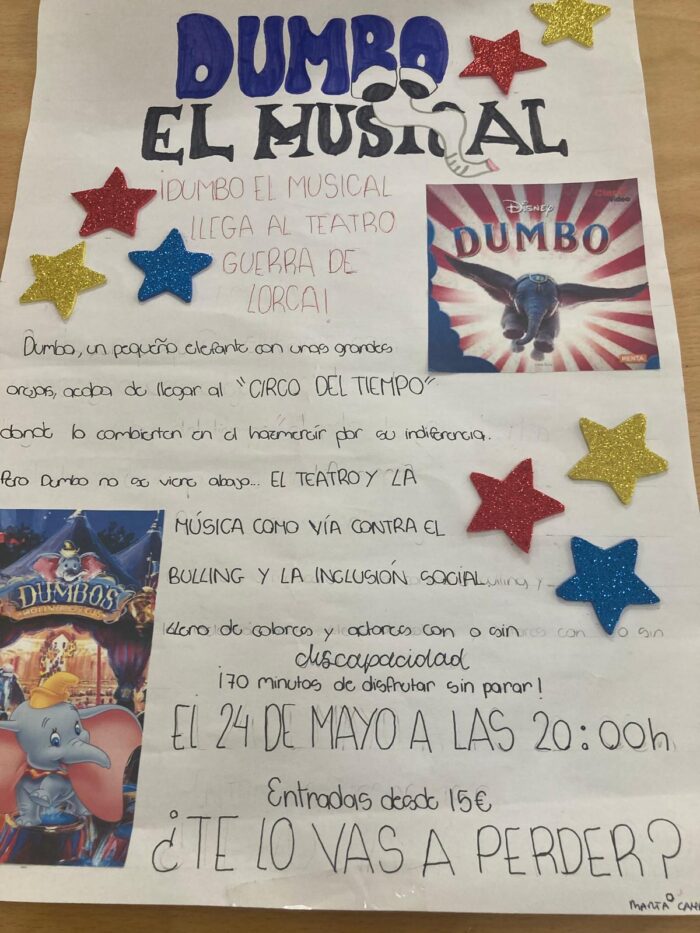 DUMBO
EL MUSICAL
¡DUMBO EL MUSICAL
LLEGA AL TEATRO
GUERRA DE
LORCA!
DISNEY
DUMBO
Dumbo, un pequeño elefante con unas grandes
orejas, acaba de llegar al "CIRCO DEL TIEMPO"
donde lo combierten en el hazmereír por su indiferencia.
Pero Dumbo no se viene abajo... EL TEATRO Y LA
MÚSICA COMO VÍA CONTRA EL
BULLING Y LA INCLUSIÓN SOCIAL
lleno de colores y actores con o sin
discapacidad
¡70 minutos de disfrutar sin parar!
EL 24 DE MAYO A LAS 20:00h
Entradas desde 15€
¿TE LO VAS A PERDER?
DUMBO'S
MARTA